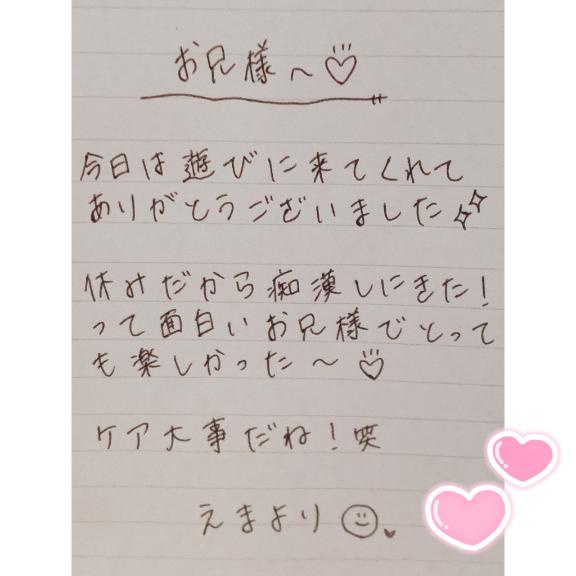 お兄様へ♡
今日は遊びに来てくれて
ありがとうございました✨
休みだから痴漢しにきた！
って面白いお兄様でとって
も楽しかった〜♡
ケア大事だね！笑
えまより☺♥